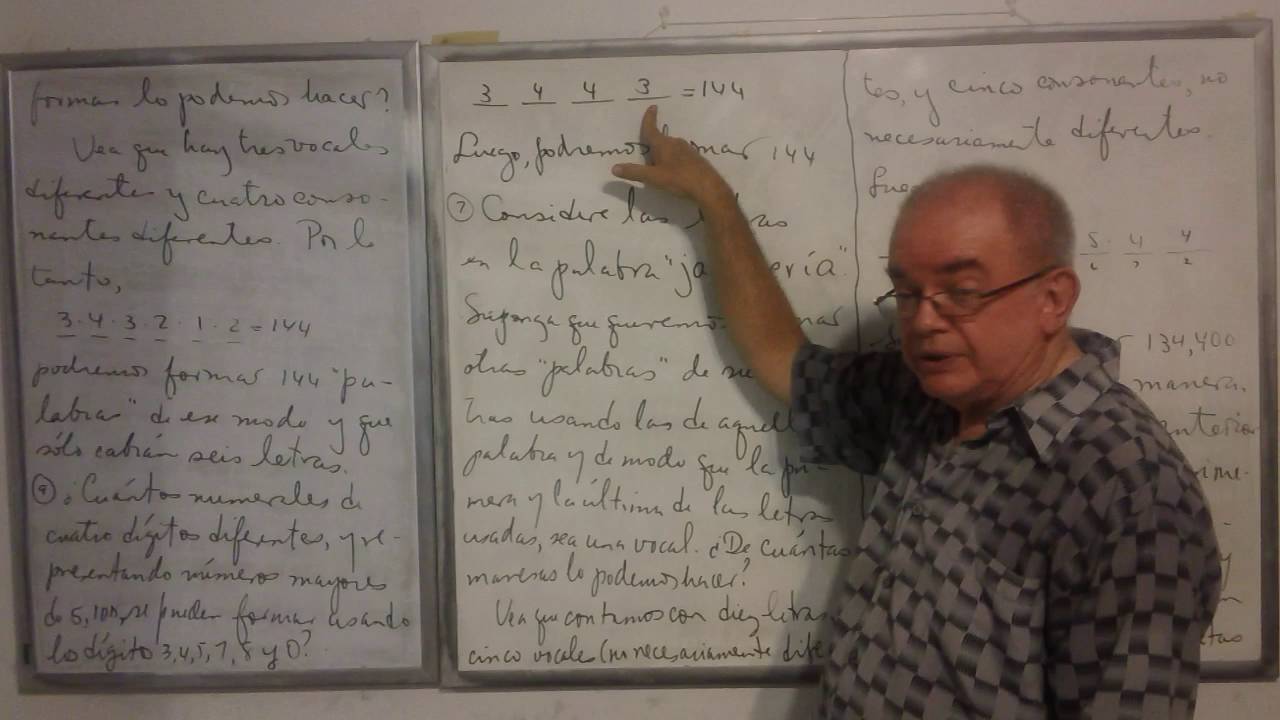 formas lo podemos hacer?
Vea que hay tres vocales
diferentes y cuatro conso-
nantes diferentes. Por lo
tanto,
3 · 4 · 3 · 2 · 1 · 2 = 144
podremos formar 144 "pa-
labras" de ese modo y que
sólo cabrán seis letras.
¿Cuántos numerales de
cuatro dígitos diferentes, y re-
presentando números mayores
de 5,100, se pueden formar usando
los dígito 3, 4, 5, 7, 8 y 0?
3 4 4 3 = 144
Luego, podremos 144
⑦ Considere las
en la palabra "ja ería".
Suponga que queremos
otras "palabras" de
tras usando las de aquell
palabra y de modo que la pri-
mera y la última de las letras
usadas, sea una vocal. ¿De cuántas
maneras lo podemos hacer?
Vea que contamos con diez letras
cinco vocales (no necesariamente dife
tes, y cinco consonantes, no
necesariamente diferentes.
5 · 4 · 4
134,400
manera.